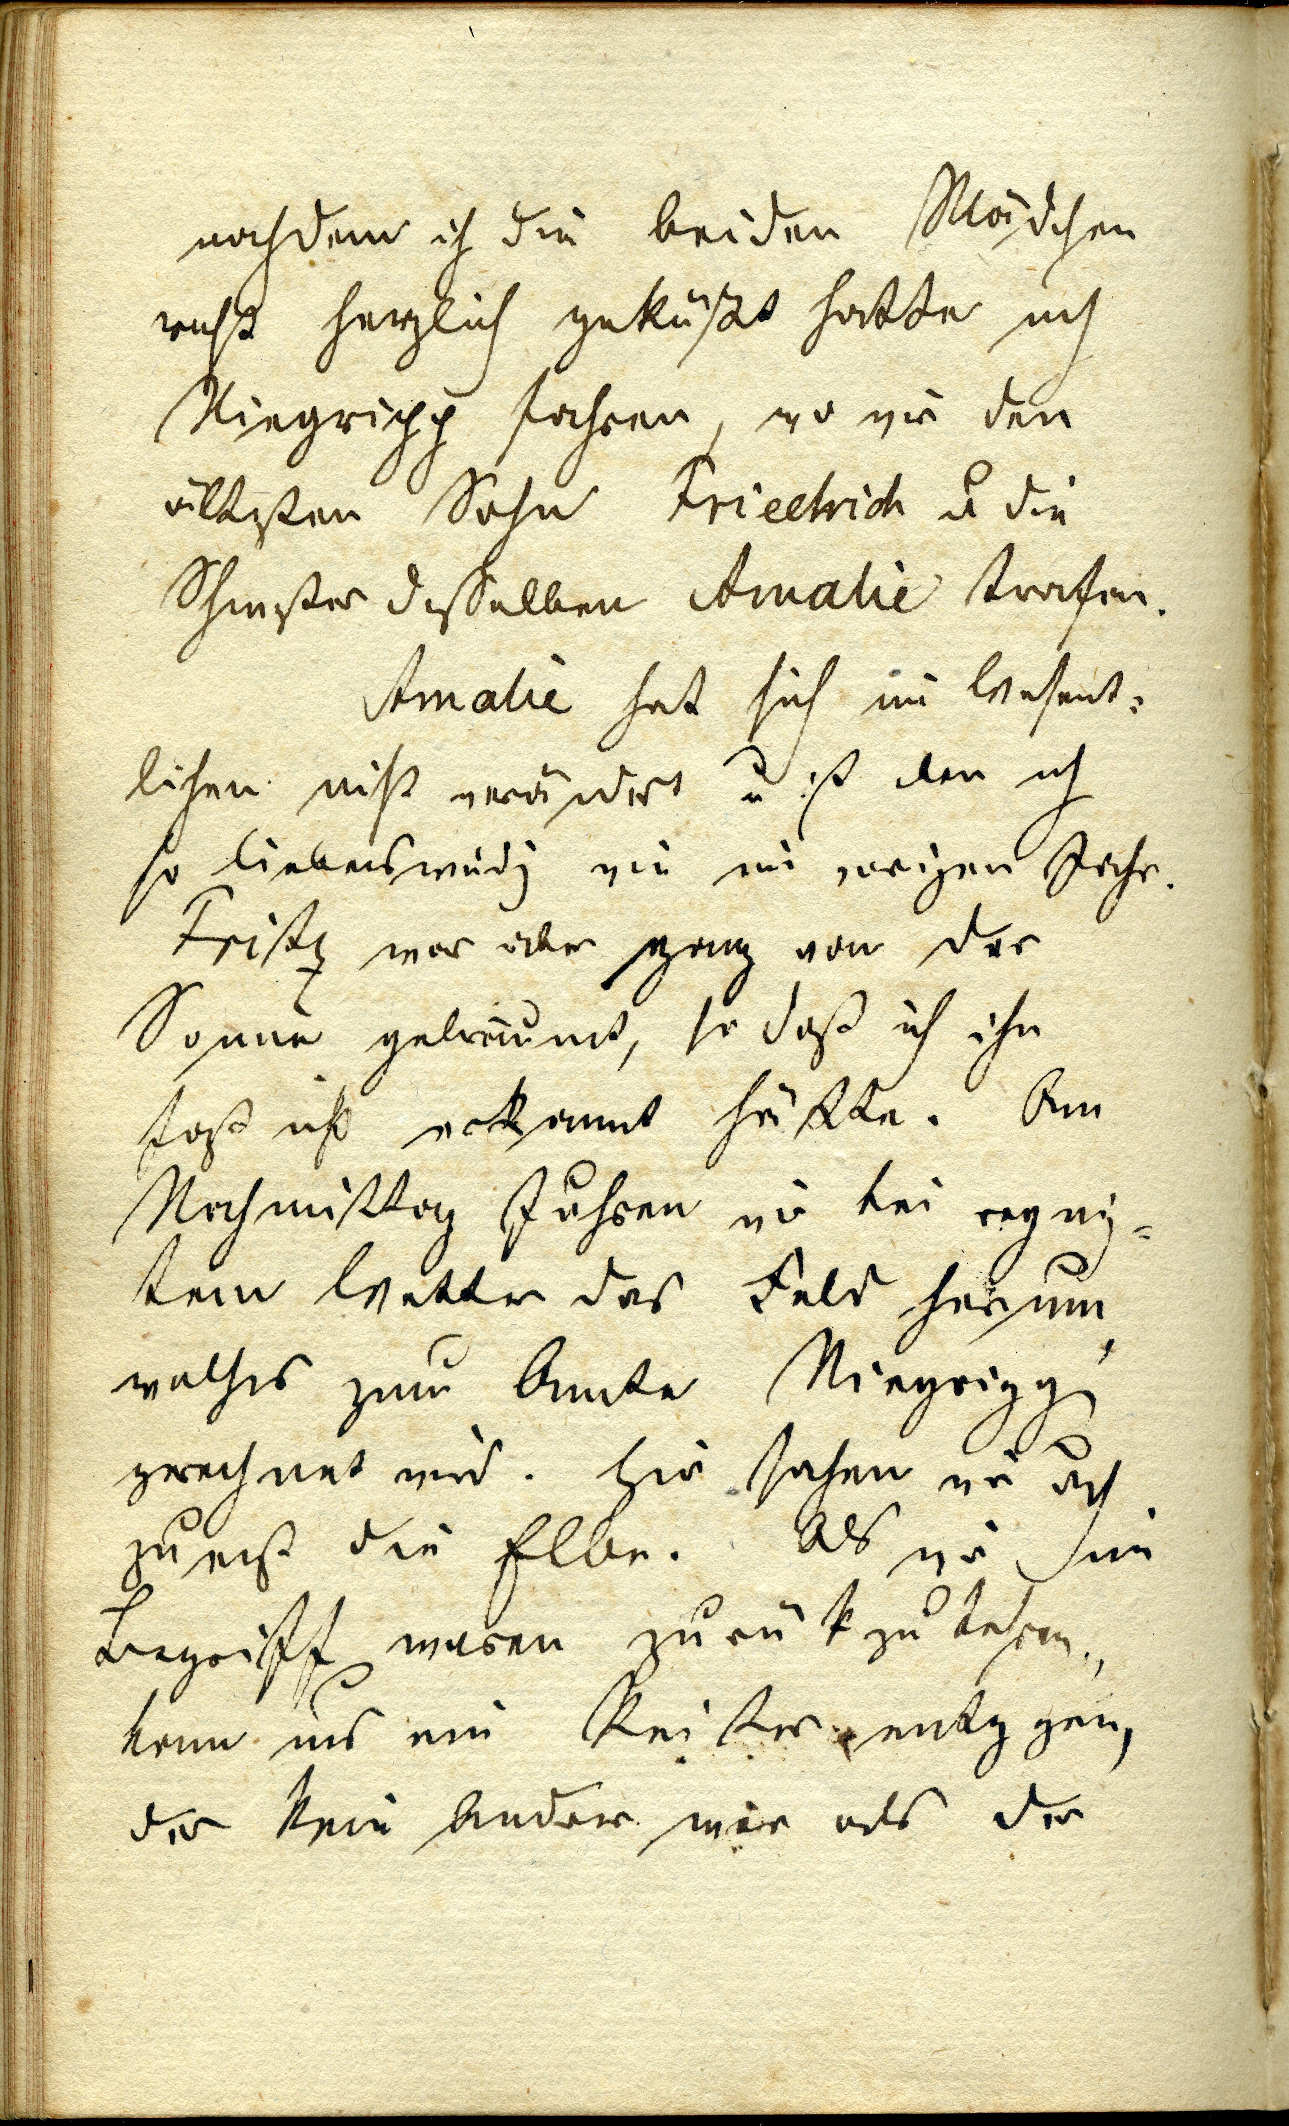 nachdem ich die beiden Mädchen
recht herzlich geküßt hatte nach
Niegripp fahren, wo wir den
ältesten Sohn Friedrich u die
Schwester desselben Amalie trafen.
Amalie hat sich im Wesent-
lichen nicht verändert u ist eben noch
so liebenswürdig wie im vorigen Jahr.
Fritz war aber ganz von der
Sonne gebräunt, so daß ich ihn
fast nicht erkannt hätte. Am
Nachmittag fuhren wir bei
Wetter das Feld herum,
welches zum Amte Niegripp
gerechnet wird. Hier sahen wir auch
zuerst die Elbe. Als wir im
Begriff waren zurückzukehren,
kam uns ein Reiter entgegen,
der kein Andrer war als der